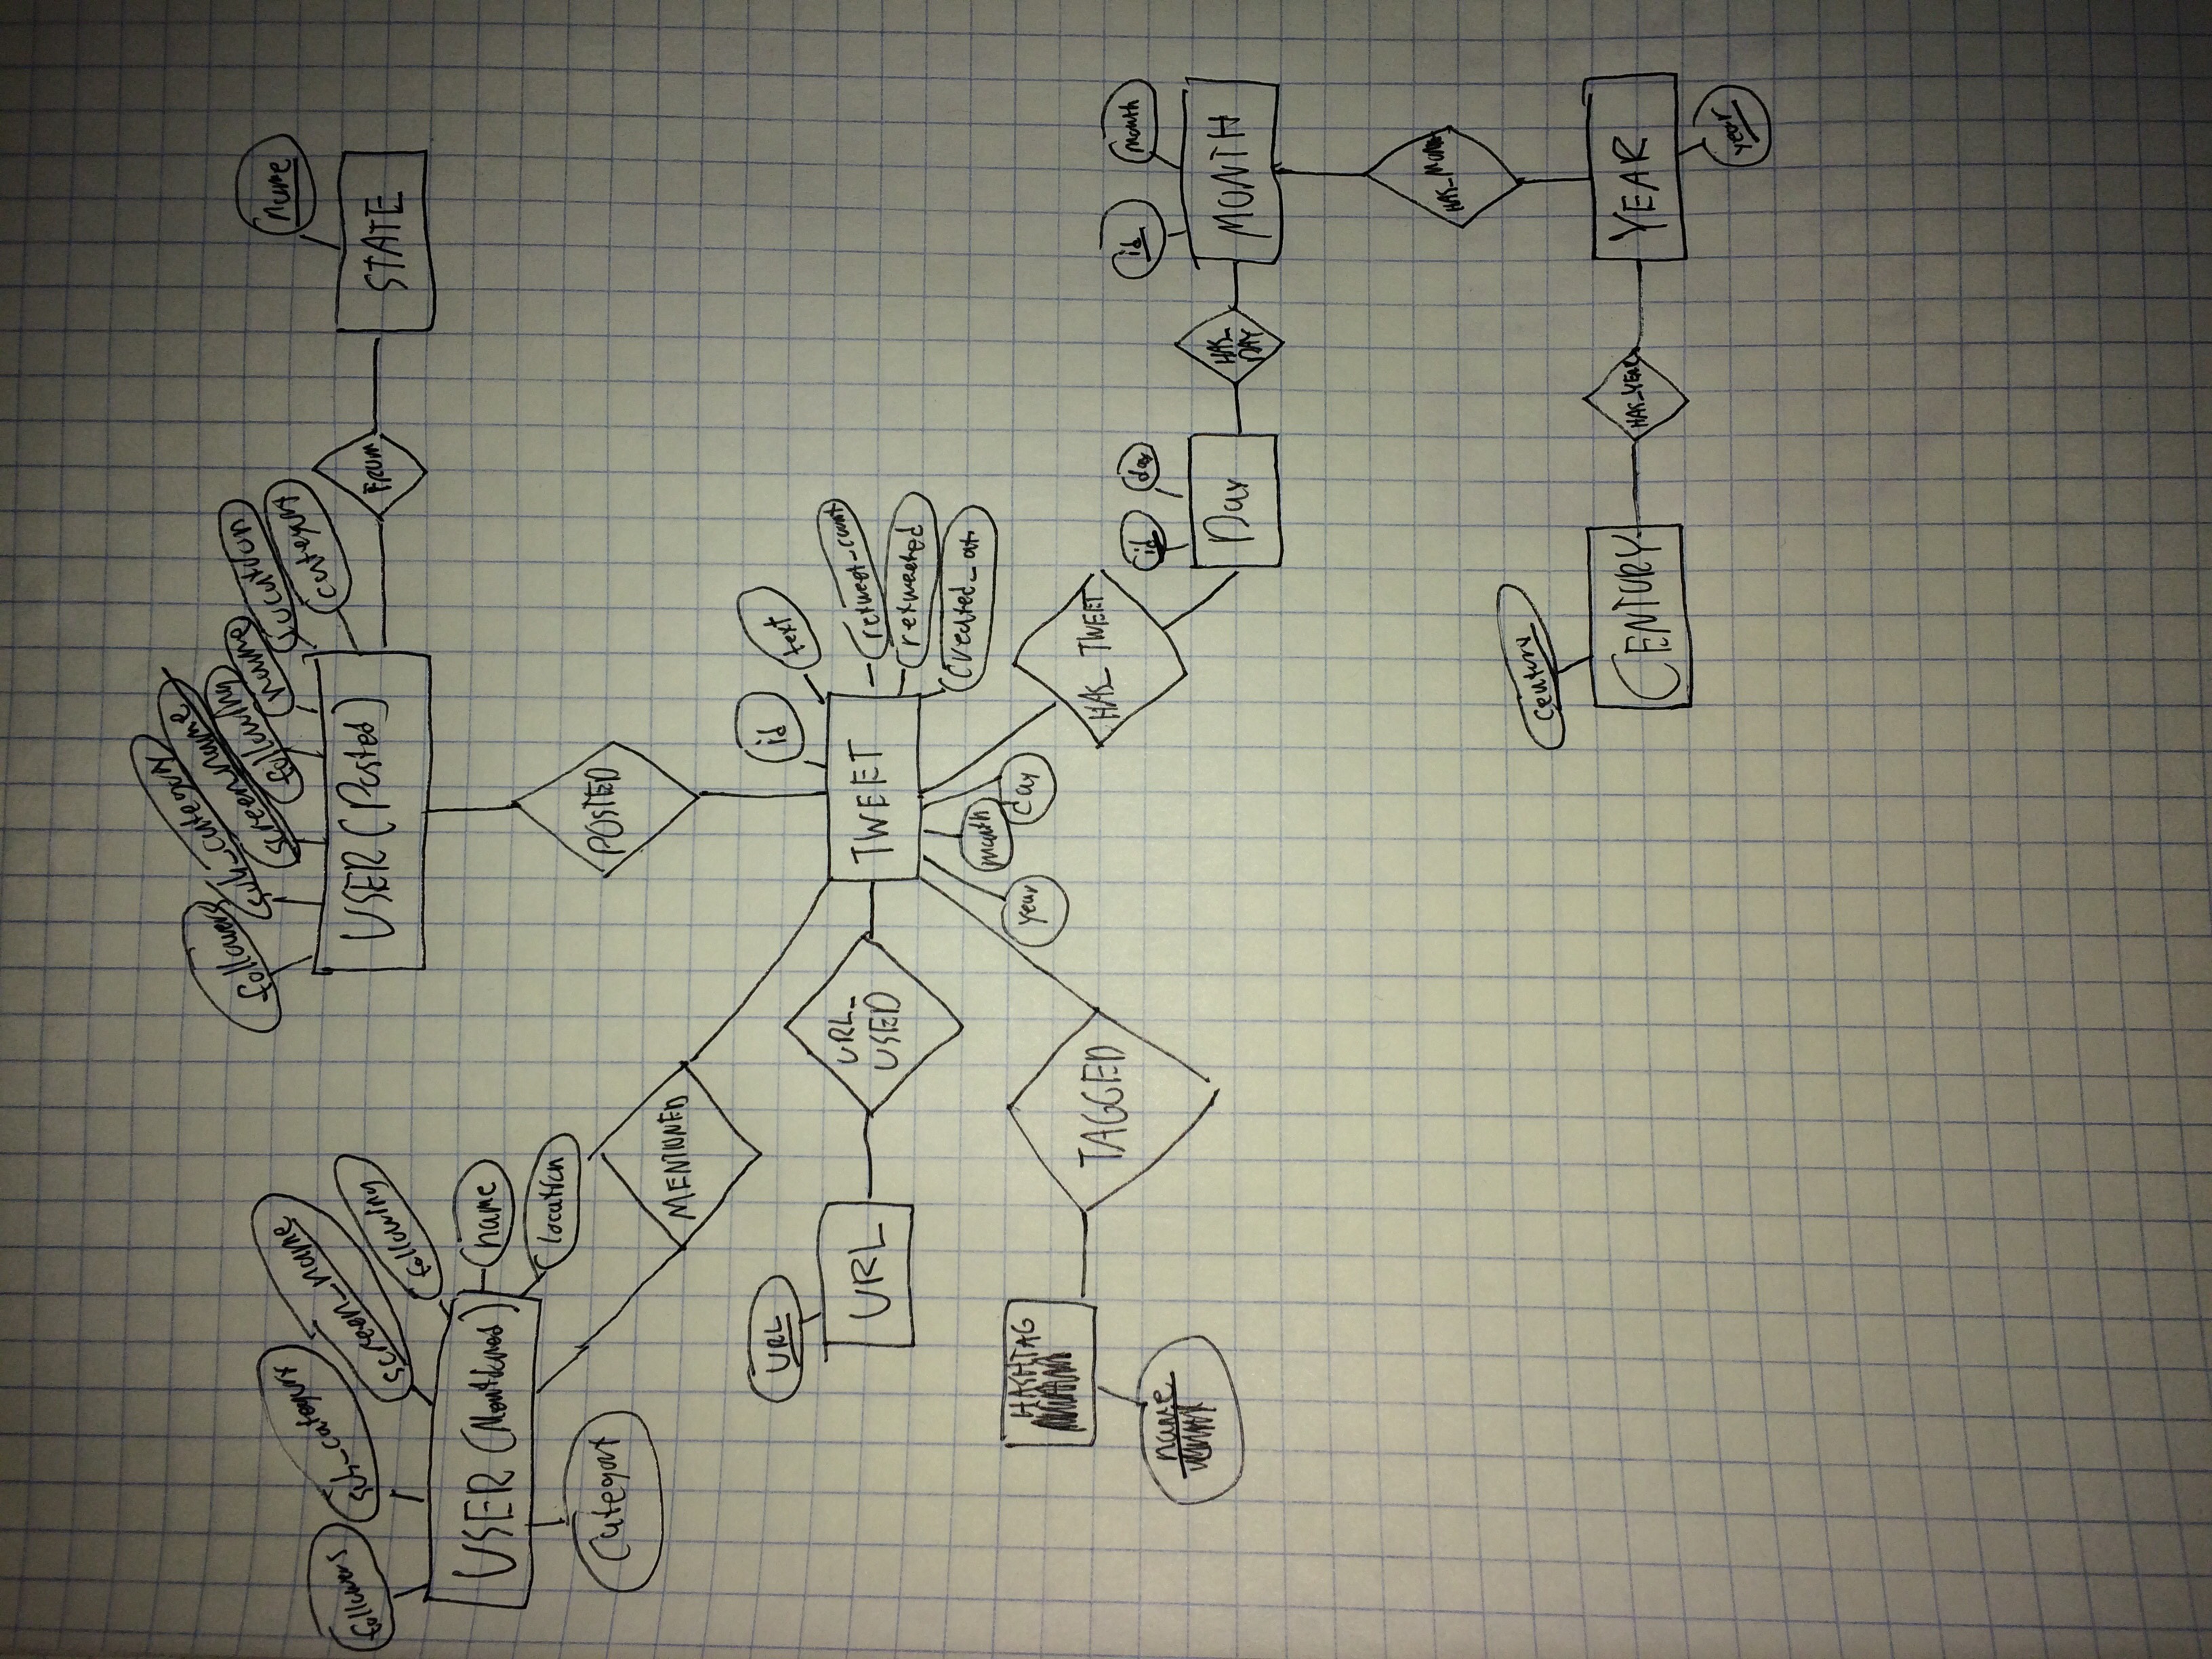 followers
sub_category
screen_name
following
name
location
category
USER (Posted)
FROM
name
STATE
followers
sub_category
screen_name
following
USER (Mentioned)
name
location
category
POSTED
MENTIONED
URL
URL
URL_
USED
TWEET
id
text
retweet_count
retweeted
created_at
year
month
day
HASHTAG
name
TAGGED
HAS_TWEET
id
day
Day
HAS_
DAY
id
month
MONTH
HAS_MONTH
century
CENTURY
HAS_YEAR
YEAR
year